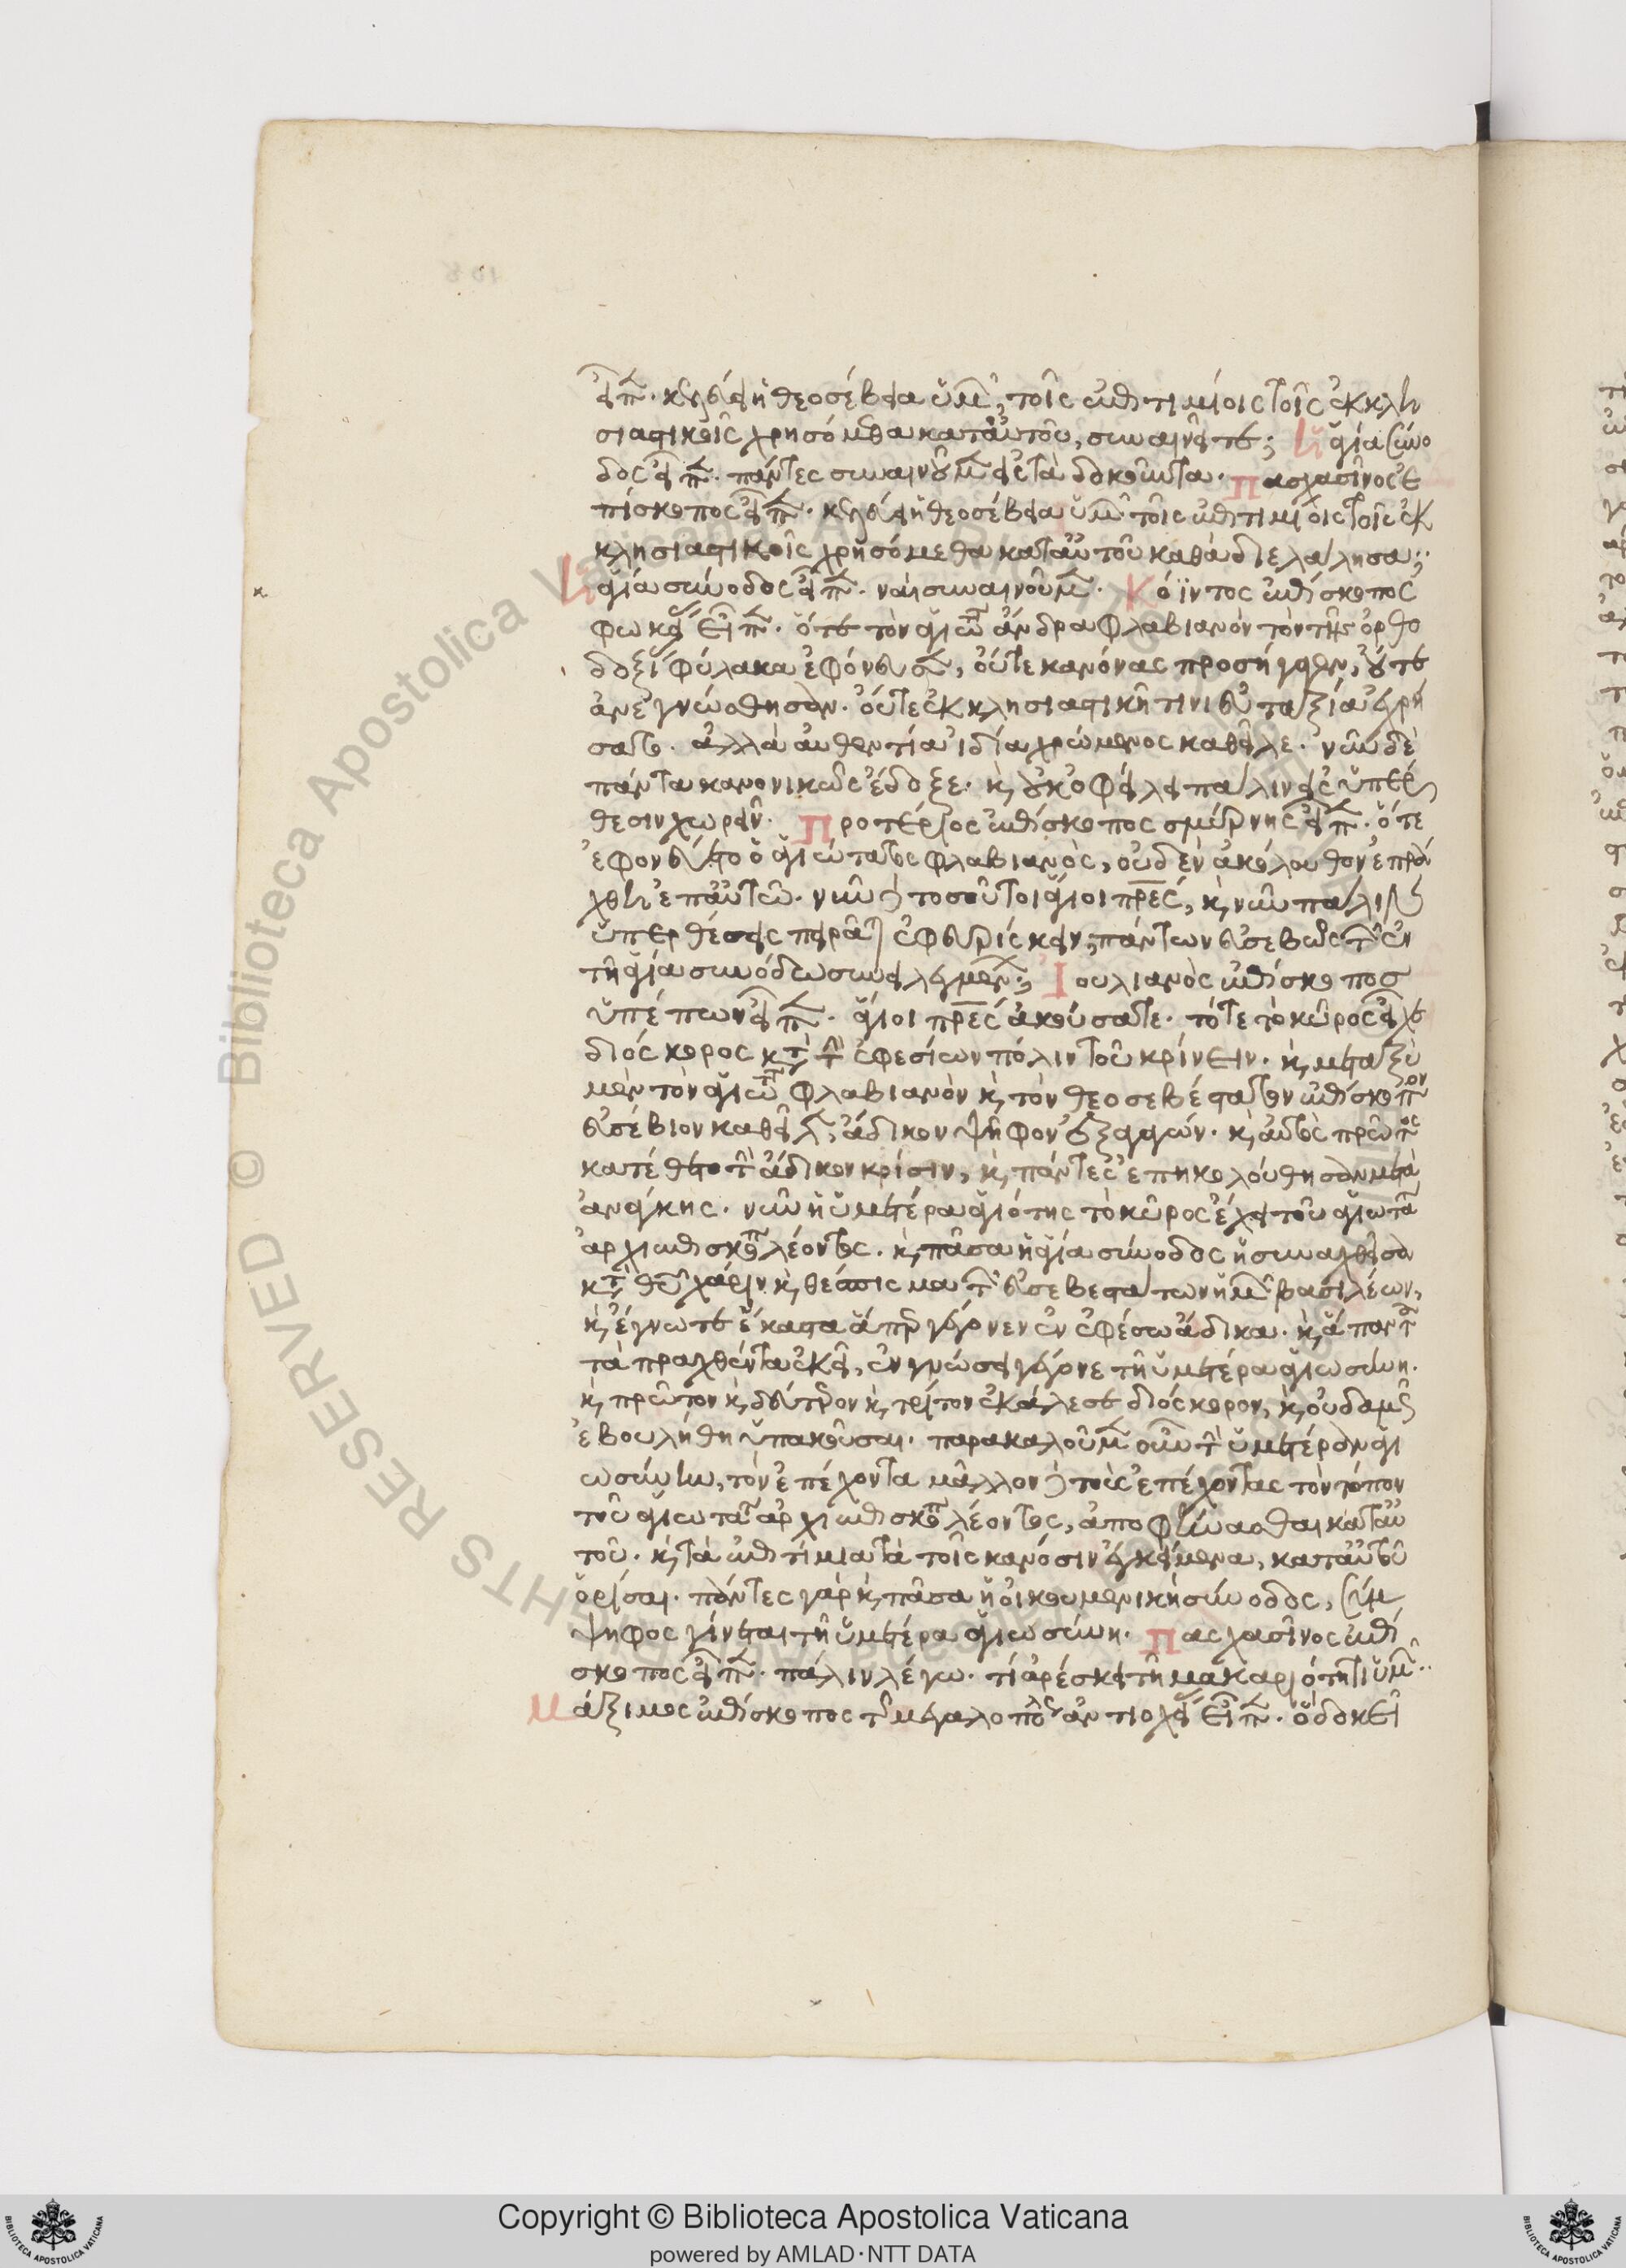 εἶπεν· κελεύει ἡ θεοσέβεια ὑμῶν, τοῖς ἐπιτιμίοις τοῖς ἐκκλη
σιαστικοῖς χρησόμεθα κατ' αὐτοῦ, συναινεῖτε; ἡ ἁγία σύνο
δος εἶπεν· πάντες συναινοῦμεν εἰς τὰ δοκοῦντα. Πασχασῖνος ἐ
πίσκοπος εἶπεν· κελεύει ἡ θεοσέβεια ὑμῶν τοῖς ἐπιτιμίοις τοῖς ἐκ
κλησιαστικοῖς χρησόμεθα κατ' αὐτοῦ καθὰ διελάλησα;
ἡ ἁγία σύνοδος εἶπεν· ναὶ συναινοῦμεν. Κόϊντος ἐπίσκοπος
φωκαίας εἶπεν· ὅτε τὸν ἁγιώτατον ἄνδρα φλαβιανὸν τὸν τῆς ὀρθο
δοξίας φύλακα ἐφόνευσεν, οὔτε κανόνας προσήγαγεν, οὔτε
ἀνεγνώσθησαν. οὔτε ἐκκλησιαστικῇ τινι εὐταξίᾳ ἐχρή
σατο. ἀλλὰ αὐθεντίᾳ ἰδίᾳ χρώμενος καθεῖλε. νῦν δὲ
πάντα κανονικῶς ἔδοξε. καὶ οὐκ ὀφείλει πάλιν εἰς ὑπέρ
θεσιν χωρεῖν. Προτέριος ἐπίσκοπος σμύρνης εἶπεν· ὅτε
ἐφονεύετο ὁ ἁγιώτατος φλαβιανὸς, οὐδὲν ἀκόλουθον ἐπρά
χθη ἐπ' αὐτῶ. νῦν τοσοῦτοι ἅγιοι πρες, καὶ νῦν πάλιν
ὑπερθέσεις ἐφευρίσκειν, πάντων εὐσεβῶς τῶν ἐν
τῇ ἁγίᾳ συνόδω συνειλεγμένων; Ἰουλιανὸς ἐπίσκοπος
ὑπέπων εἶπεν· ἅγιοι πρες ἀκούσατε. τότε τὸ κῦρος εἶχε
διόσκορος κατὰ τὴν ἐφεσίων πόλιν τοῦ κρίνειν. καὶ μεταξὺ
μὲν τὸν ἁγιώτατον φλαβιανὸν καὶ τὸν θεοσεβέστατον ἐπίσκοπον
εὐσέβιον καθεῖλεν, ἄδικον ψῆφον ἐξαγαγών. καὶ αὐτὸς πρῶτος
κατέθετο τὴν ἄδικον κρίσιν, καὶ πάντες ἐπηκολούθησαν μετὰ
ἀνάγκης. νῦν ἡ ὑμετέρα ἁγιότης τὸ κῦρος ἔχει τοῦ ἁγιωτάτου
ἀρχιεπισκόπου λέοντος. καὶ πᾶσα ἡ ἁγία σύνοδος ἡ συναχθεῖσα
κατὰ θεοῦ χάριν καὶ θέσπισμα τῶν εὐσεβεστάτων ἡμῶν βασιλέων,
καὶ ἔγνωτε ἕκαστα ἅπερ γέγονεν ἐν ἐφέσω ἄδικα. καὶ ἅπαντα
τὰ πραχθέντα ἐκεῖ, ἐν γνώσει γέγονε τῇ ὑμετέρᾳ ἁγιωσύνη.
καὶ πρῶτον καὶ δεύτερον καὶ τρίτον ἐκάλεσε διόσκορον, καὶ οὐδαμῶς
ἐβουλήθη ὑπακοῦσαι. παρακαλοῦμεν οὖν τὴν ὑμετέραν ἁγι
ωσύνην, τὸν ἐπέχοντα μᾶλλον τοὺς ἐπέχοντας τὸν τόπον
τοῦ ἁγιωτάτου ἀρχιεπισκόπου λέοντος, ἀποφήνασθαι κατ' αὐ
τοῦ. καὶ τὰ ἐπιτίμια τὰ τοῖς κανόσιν ἐγκείμενα, κατ' αὐτοῦ
ὁρίσαι. πάντες γὰρ καὶ πᾶσα ἡ οἰκουμενικὴ σύνοδος, σύμ
ψηφος γίνεται τῇ ὑμετέρᾳ ἁγιωσύνη. Πασχασῖνος ἐπί
σκοπος εἶπεν· πάλιν λέγω. τί ἀρέσκει τῇ μακαριότητι ὑμῶν;
Μάξιμος ἐπίσκοπος τῆς μεγαλοπόλεως ἀντιοχείας εἶπεν· ὃ δοκεῖ